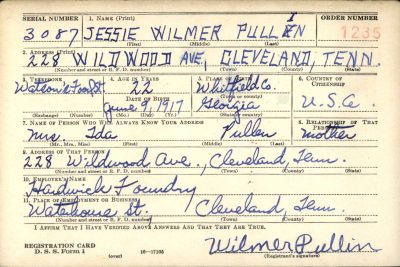 SERIAL NUMBER 1. NAME (Print) ORDER NUMBER
3087 JESSIE WILMER PULLIN 1235
(First) (Middle) (Last)
2. ADDRESS (Print)
228 WILDWOOD AVE, CLEVELAND, TENN.
(Number and street or R. F. D. number) (Town) (County) (State)
3. TELEPHONE 4. AGE IN YEARS 5. PLACE OF BIRTH 6. COUNTRY OF
CITIZENSHIP
22 Whitfield Co.
DATE OF BIRTH (Town or county)
June 9, 1917 Georgia U.S.a.
(Exchange) (Number) (Mo.) (Day) (Yr.) (State or country)
7. NAME OF PERSON WHO WILL ALWAYS KNOW YOUR ADDRESS 8. RELATIONSHIP OF THAT
PERSON
Mrs. Ida Pullen mother
(Mr., Mrs., Miss) (First) (Middle) (Last)
9. ADDRESS OF THAT PERSON
228 Wildwood Ave., Cleveland, Tenn.
(Number and street or R. F. D. number) (Town) (County) (State)
10. EMPLOYER'S NAME
Hardwick Foundry
11. PLACE OF EMPLOYMENT OR BUSINESS
Waterhouse St. Cleveland, Tenn
(Number and street or R. F. D. number) (Town) (County) (State)
I AFFIRM THAT I HAVE VERIFIED ABOVE ANSWERS AND THAT THEY ARE TRUE.
REGISTRATION CARD
D. S. S. Form 1 (over) 16—17105 Wilmer Pullin
(Registrant's signature)